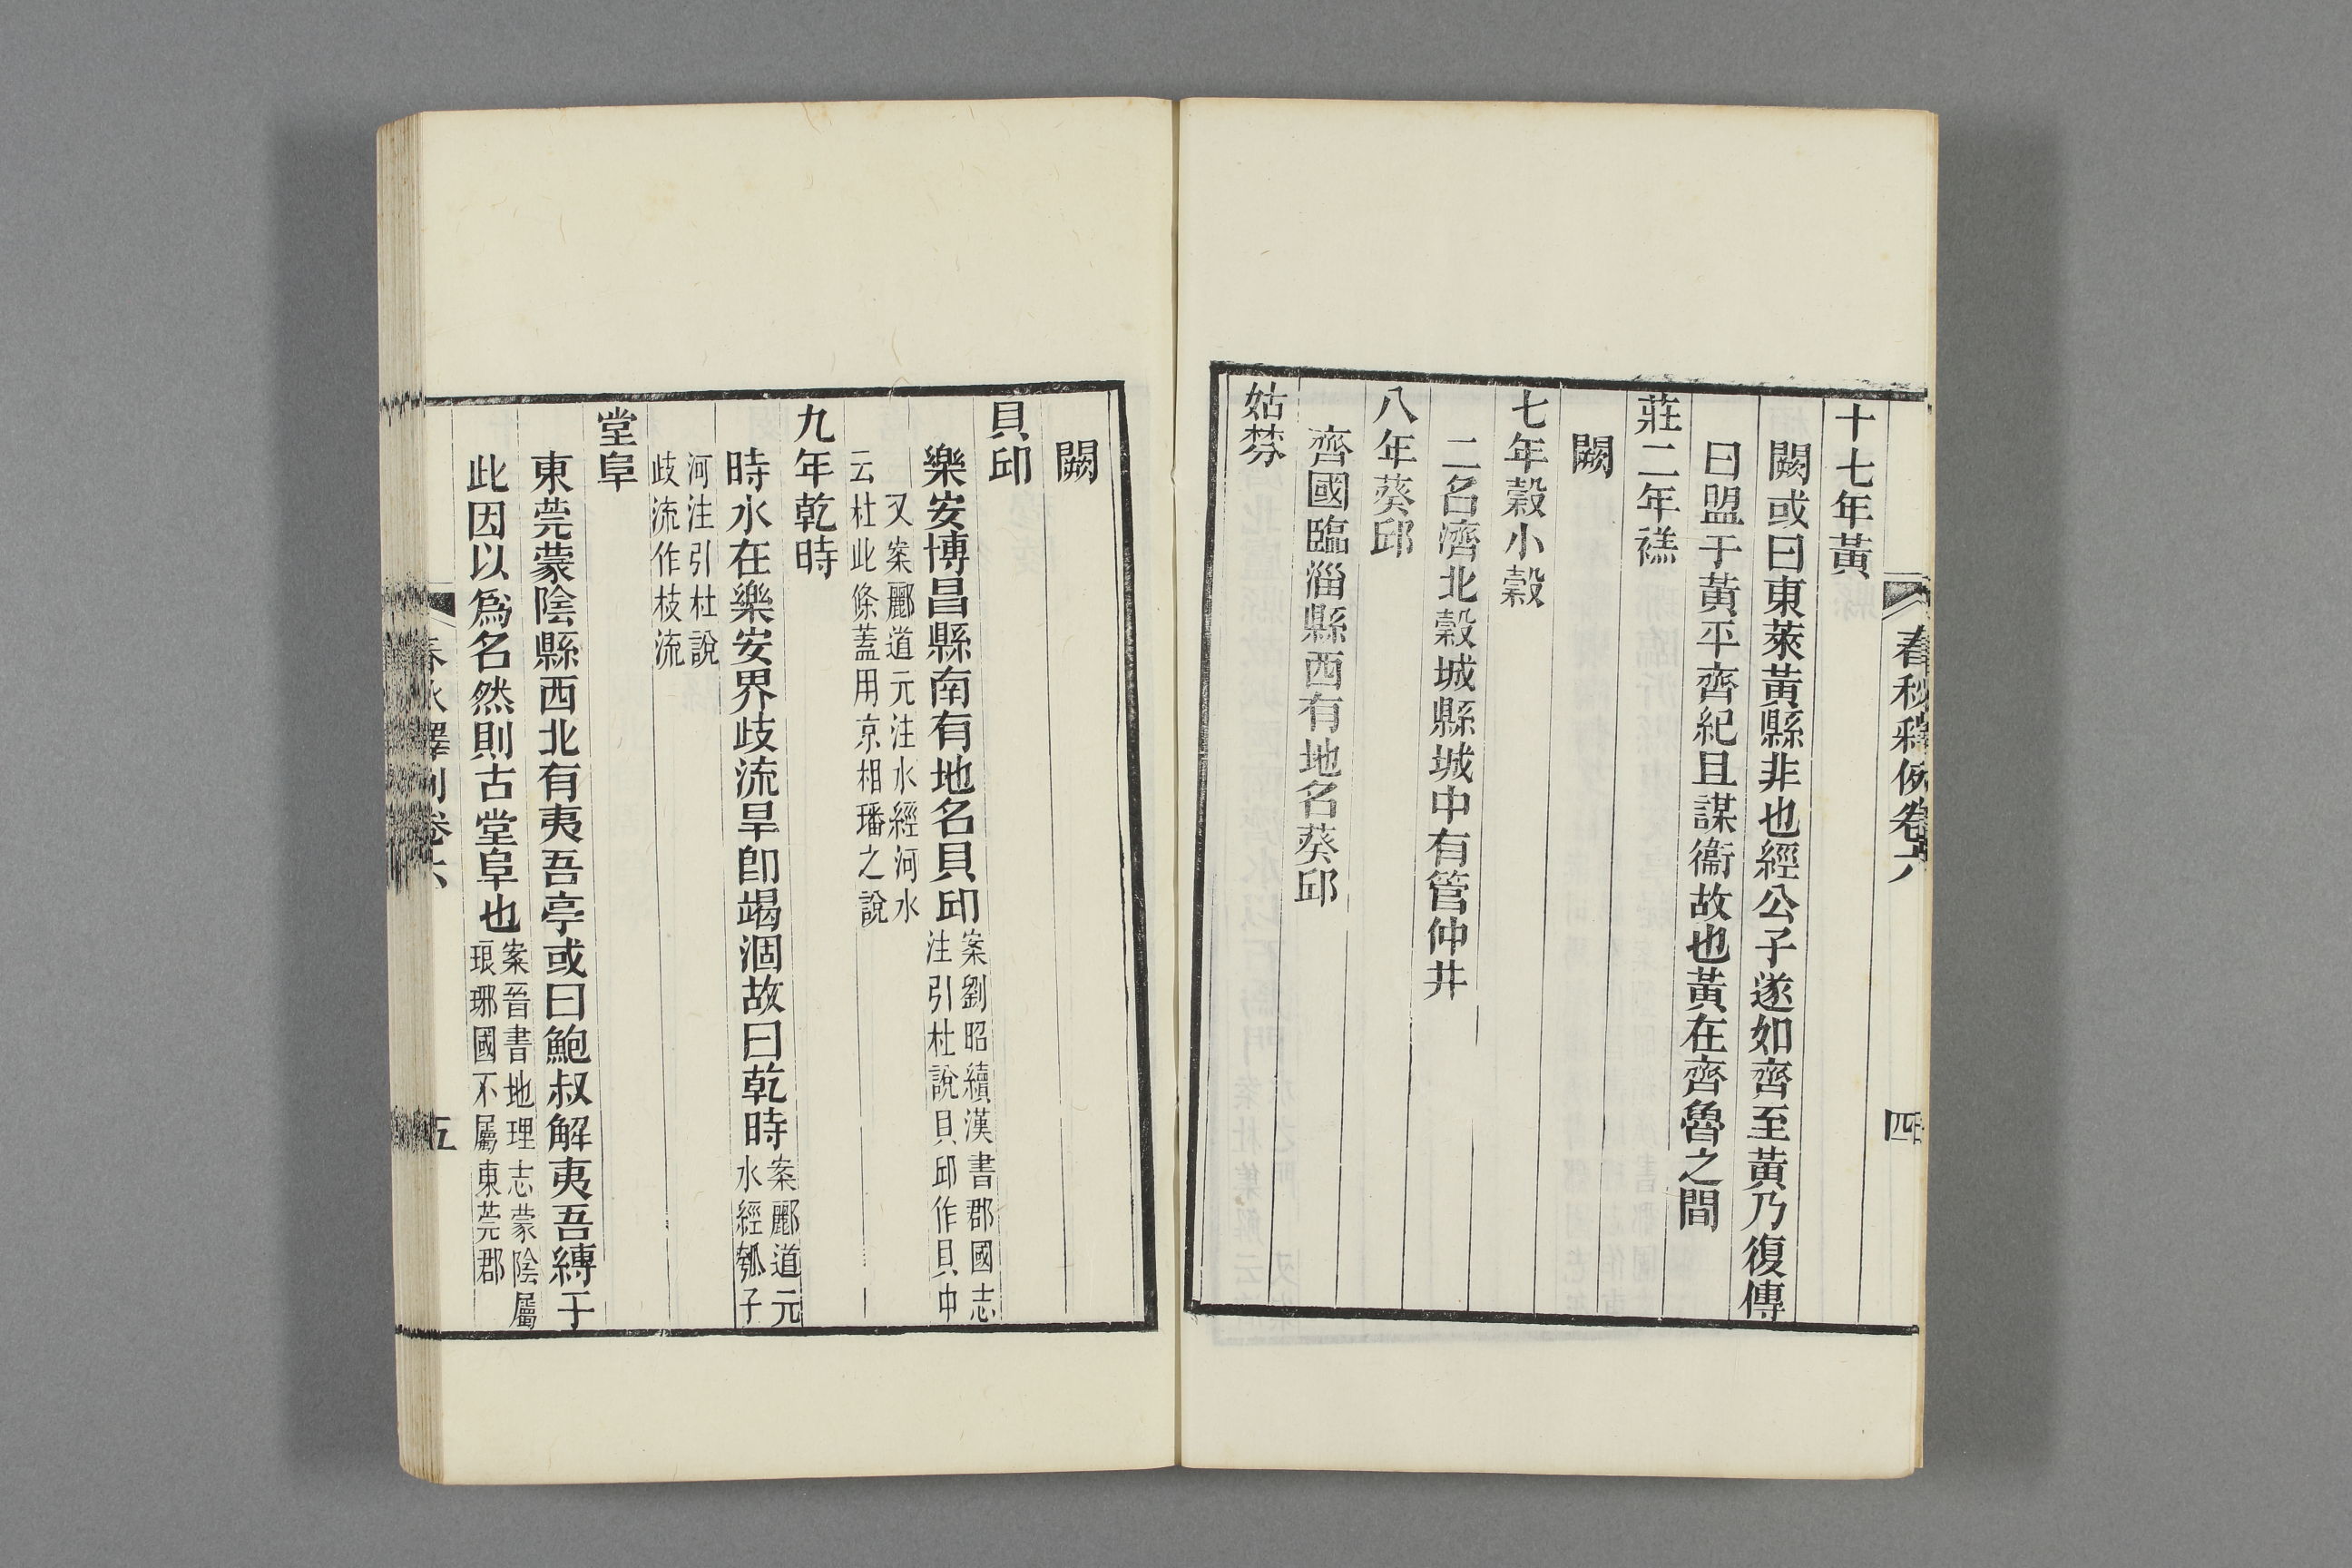 春秋釋例卷六　四
十七年黃
闕或曰東萊黃縣非也經公子遂如齊至黃乃復傳
曰盟于黃平齊紀且謀衞故也黃在齊魯之間
莊二年禚
闕
七年穀小穀
二名濟北穀城縣城中有管仲井
八年葵邱
齊國臨淄縣西有地名葵邱
姑棼
闕
貝邱
樂安博昌縣南有地名貝邱案劉昭續漢書郡國志
注引杜說貝邱作貝中
又案酈道元注水經河水
云杜此條蓋用京相璠之說
九年乾時
時水在樂安界歧流旱卽竭涸故曰乾時案酈道元
水經瓠子
河注引杜說
歧流作枝流
堂阜
東莞蒙陰縣西北有夷吾亭或曰鮑叔解夷吾縛于
此因以爲名然則古堂阜也案晉書地理志蒙陰屬
琅琊國不屬東莞郡
春秋釋例卷六　五